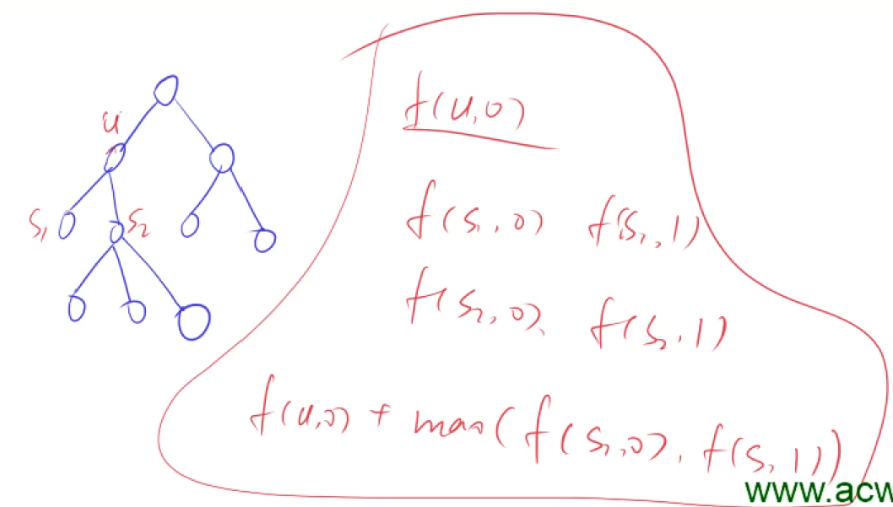 u
S₁
S₂
f(u,0)
f(S₁,0) f(S₁,1)
f(S₂,0), f(S₂,1)
f(u,0) + max(f(S₁,0), f(S₁,1))
www.acw